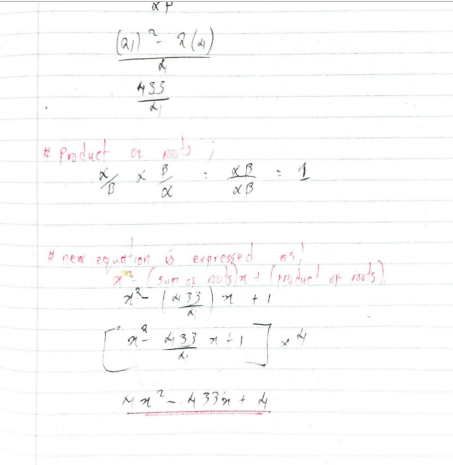 αβ
(21)² - 2(4)
4
433
4
# Product of roots ;
α/β × β/α = αβ/αβ = 1
# new equation is expressed as;
x² - (sum of roots)x + (product of roots)
x² - (433/4) x + 1
[x² - 433/4 x + 1] × 4
4x² - 433x + 4